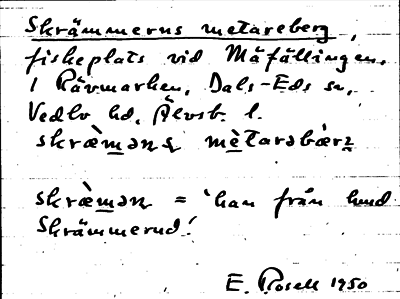 Skrämmerns metareberg,
fiskeplats vid Måfällingen.
I Rävmarken, Dals-Eds sn,
Vedbo hd, Älvsb. l.
skræ̀məns mètarəbær̀j

skræ̀mən = 'han från
Skrämmerud'
E. Rosell 1950